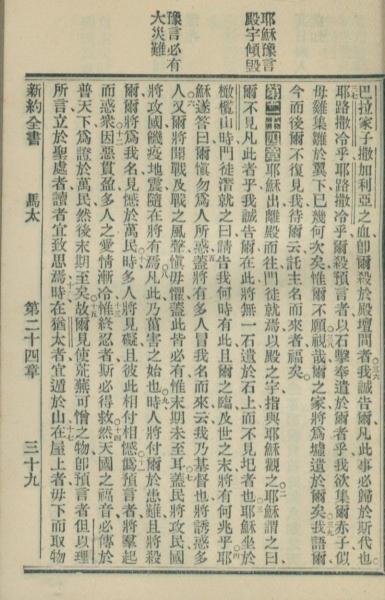 耶穌豫言
殿宇傾毀
豫言必有
大災難
巴拉家子撒加利亞之血卽爾殺於殿壇間者我誠告爾凡此事必歸於斯代也
耶路撒冷乎耶路撒冷乎爾殺預言者以石擊奉遣於爾者乎我欲集爾赤子似
母雞集雛於翼下已幾何次矣惟爾不願視哉爾之家將爲墟遺於爾矣我語爾
今而後爾不復見我待爾云託主名而來者福矣
第二十四章 耶穌出離殿而往門徒就焉以殿之宇指與耶穌觀之耶穌謂之曰
爾不見凡此者乎我誠告爾在此將無一石遺於石上而不見圮者也耶穌坐於
橄欖山時門徒潛就之曰請告我何時有此且爾之臨及世之末將有何兆乎耶
穌遂答曰爾愼勿爲人所惑蓋將有多人冒我名而來云我乃基督也將誘惑多
人又爾將聞戰及戰之風聲愼毋懼蓋此皆必有惟末期未至耳蓋民將攻民國
將攻國饑疫地震隨在將有焉凡此乃菑害之始也時人將付爾於患難且將殺
爾爾將爲我名見憾於萬民時多人將見礙且彼此相付相憾僞預言者將羣起
而惑衆因惡貫盈多人之愛情漸冷惟終忍者斯必得救然天國之福音必傳於
普天下爲證於萬民然後末期至矣故爾見使荒蕪可憎之物卽預言者但以理
所言立於聖處者讀者宜致思焉時在猶太者宜遁於山在屋上者毋下而取物
新約全書 馬太 第二十四章 三十九